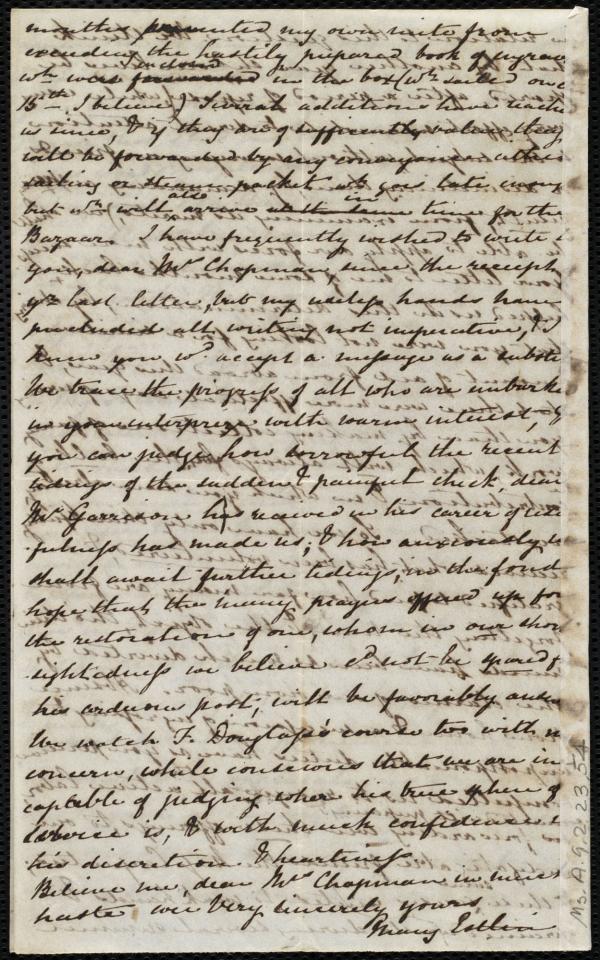 months prevented my own note from
exceeding the hastily prepared book of
wh. were forwarded in the box (wh. sailed on
15th I believe) Several additions have
us since, & if they are of sufficiently value they
will be forwarded by any conveyance either
sailing or steam packet wh. goes late
but wh. will also arrive in time for the
Bazaar. I have frequently wished to write
you, dear Mrs. Chapman, since the receipt
yr. last letter, but my useless hands have
precluded all writing not imperative, & I
knew you wd. accept a message as a substi
We trace the progress of all who are embarke
in your enterprize with warm interest, &
you can judge how sorrowful the recent
tidings of the sudden & painful check, dear
Mr. Garrison has received in his career of use
fulness has made us; & how anxiously we
shall await further tidings, in the fond
hope that the many prayers offered up for
the restoration of one, whom in our shor
sightedness we believe cd. not be spared f
his arduous post, will be favorably answ
We watch F. Douglass's course too with m
concern, while conscious that we are in
capable of judging where his true sphere of
service is, & with much confidence in
his discretion & heartiness
Believe me, dear Mrs. Chapman in much
haste ever very sincerely yours
Mary Estlin
Ms. A.9.2.23.54